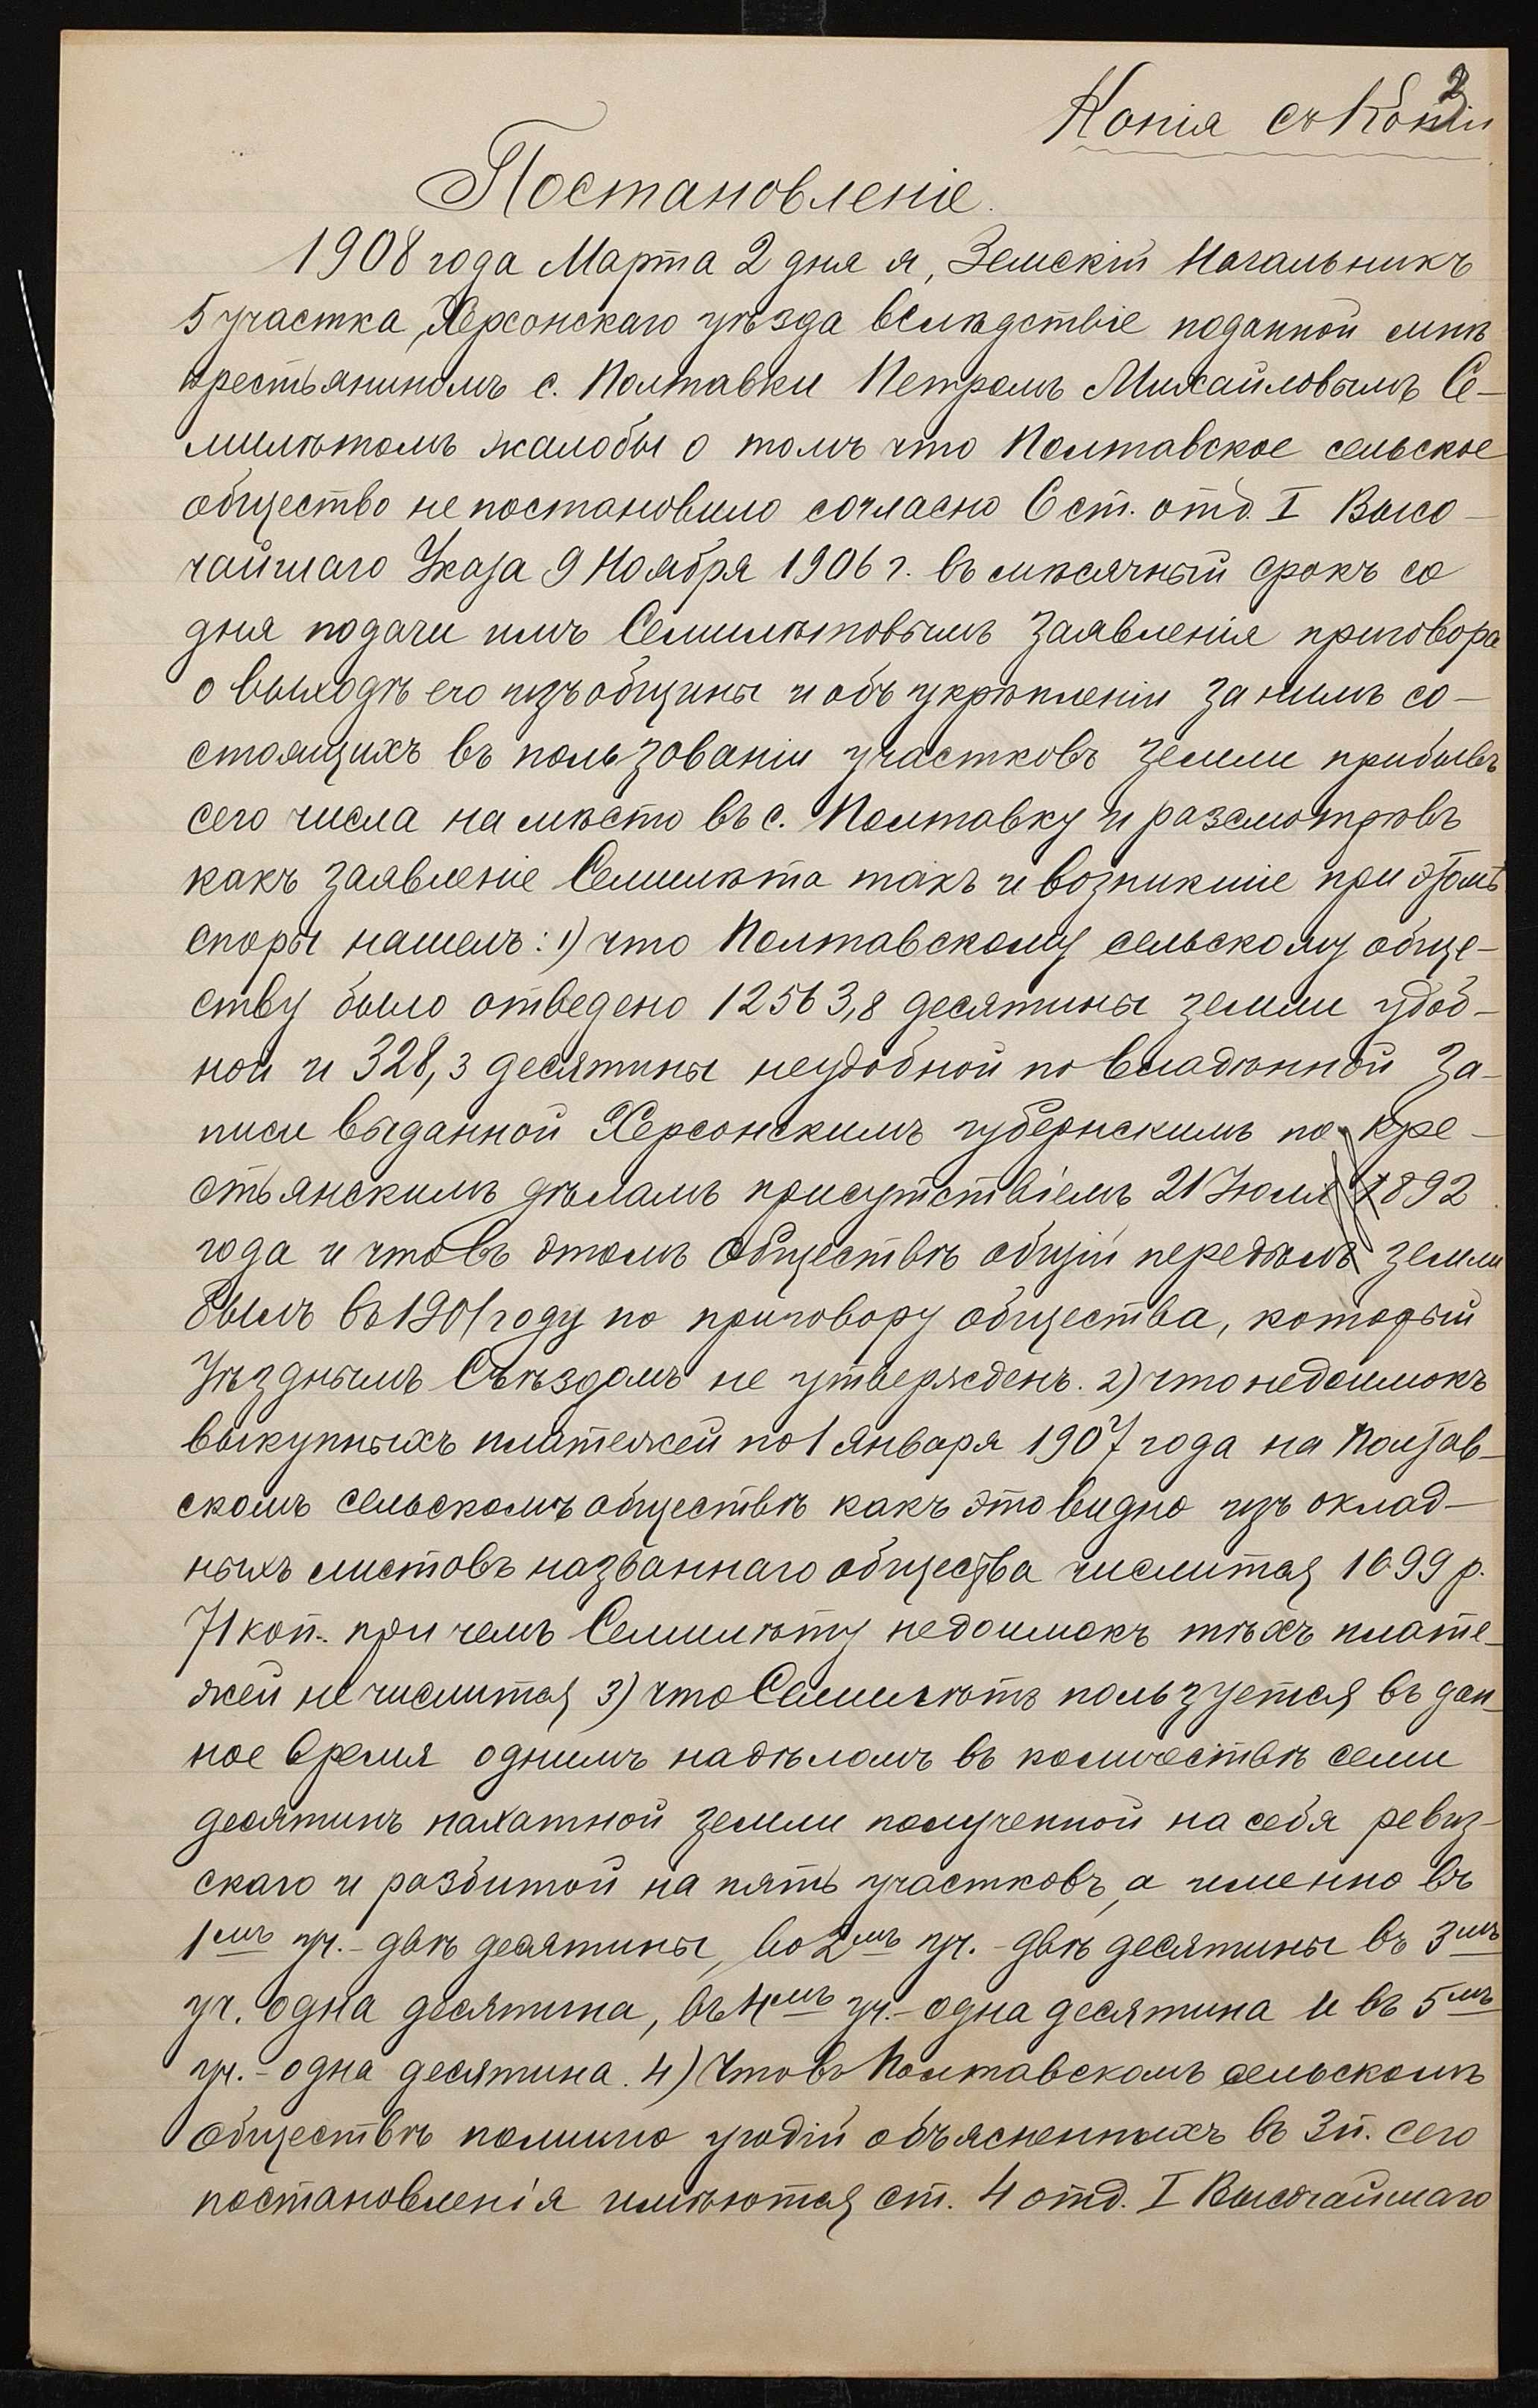 2
Копія съ Копіи
Постановленіе.
1908 года Марта 2 дня я, Земскій Начальникъ
5 участка, Херсонскаго уѣзда вслѣдствіе поданной мнѣ
крестьяниномъ с. Полтавки Петромъ Михайловымъ Се-
милѣтомъ жалобы о томъ что Полтавское сельское
общество не постановило согласно 6 ст. отд. I Высо-
чайшаго Указа 9 Ноября 1906 г. въ мѣсячный срокъ со
дня подачи имъ Семилѣтовымъ заявленія приговора
о выходѣ его изъ общины и объ укрѣпленіи за нимъ со-
стоящихъ въ пользованіи участковъ земли прибывъ
сего числа на мѣсто въ с. Полтавку и разсмотрѣвъ
какъ заявленіе Семилѣта такъ и возникшіе при этомъ
споры нашелъ: 1) что Полтавскому сельскому обще-
ству было отведено 12563,8 десятины земли удоб-
ной и 328,3 десятины неудобной по владѣнной за-
писи выданной Херсонскимъ губернскимъ по кре-
стьянскимъ дѣламъ присутствіемъ 21 Іюля 1892
года и что въ этомъ обществѣ общій передѣлъ земли
былъ въ 1901 году по приговору общества, который
Уѣзднымъ Съѣздомъ не утвержденъ. 2) что недоимокъ
выкупныхъ платежей по 1 января 1907 года на Полтав-
скомъ сельскомъ обществѣ какъ это видно изъ оклад-
ныхъ листовъ названнаго общества числится 1699 р.
71 коп. при чемъ Семилѣту недоимокъ тѣхъ плате-
жей не числится 3) что Семилѣтъ пользуется въ дан-
ное время однимъ надѣломъ въ количествѣ семи
десятинъ пахатной земли полученной на себя ревиз-
скаго и разбитой на пять участковъ, а именно въ
1мъ уч.- двѣ десятины, во 2мъ уч.- двѣ десятины въ 3мъ
уч. одна десятина, въ 4мъ уч.- одна десятина и въ 5мъ
уч.- одна десятина. 4) Что въ Полтавскомъ сельскомъ
обществѣ помимо угодій объясненныхъ въ 3 п. сего
постановленія имѣются ст. 4 отд. I Высочайшаго